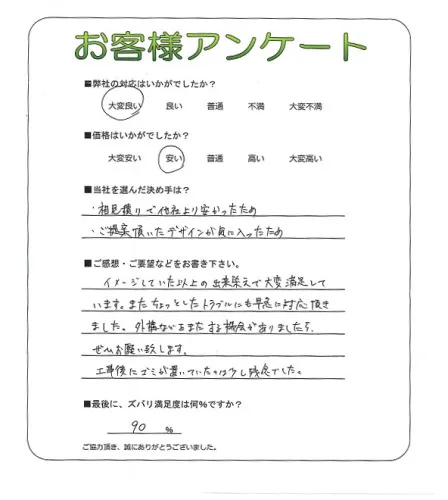 お客様アンケート
■弊社の対応はいかがでしたか?
大変良い 良い 普通 不満 大変不満
■価格はいかがでしたか?
大変安い 安い 普通 高い 大変高い
■当社を選んだ決め手は?
・相見積りで他社より安かったため
・ご提案頂いたデザインが気に入ったため
■ご感想・ご要望などをお書き下さい。
イメージしていた以上の出来栄えで大変満足して
います。またちょっとしたトラブルにも早急に対応頂き
ました。外構などまたする機会がありましたら、
ぜひお願い致します。
工事後にゴミが置いていたのは少し残念でした。
■最後に、ズバリ満足度は何%ですか?
90 %
ご協力頂き、誠にありがとうございました。